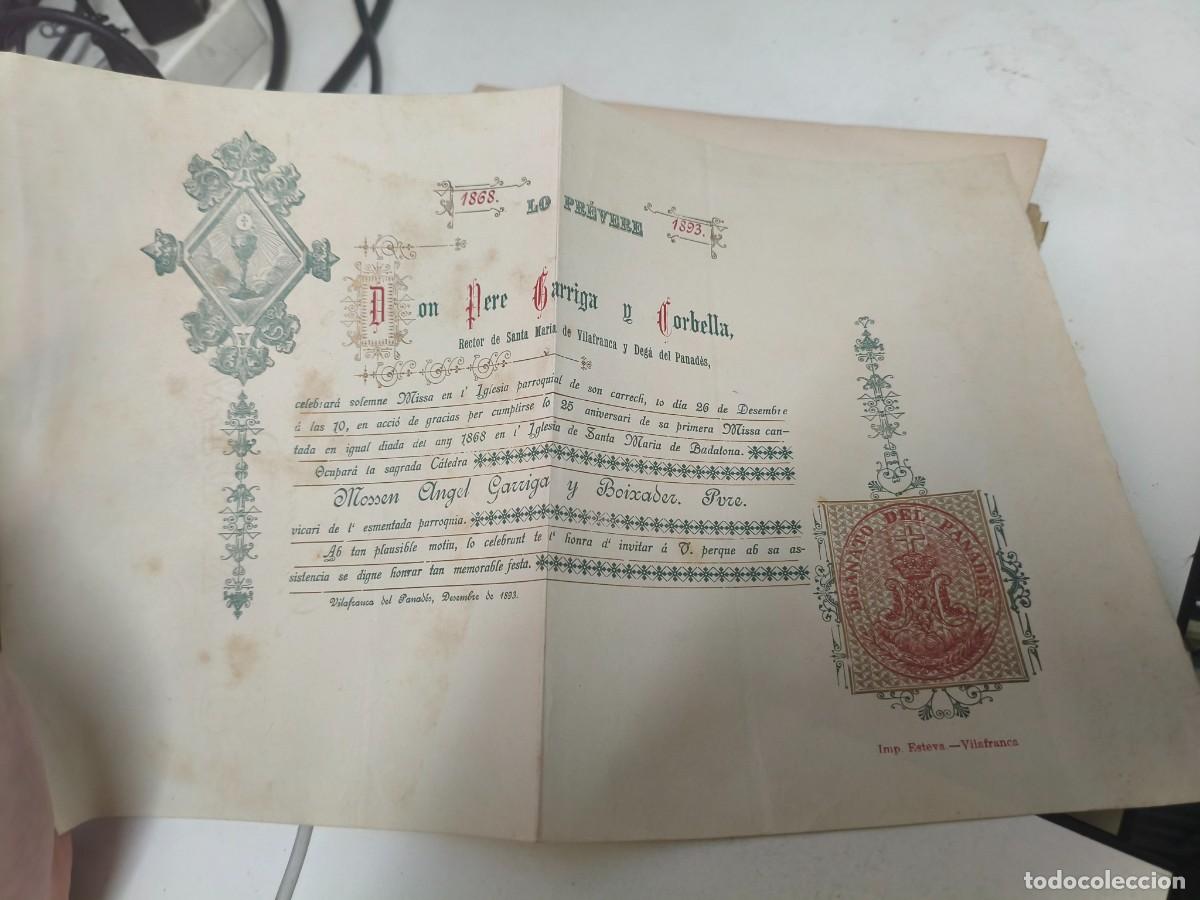 1868. LO PRÉVERE 1893.
Don Pere Garriga y Corbella,
Rector de Santa Maria de Vilafranca y Degá del Panadés,
celebrará solemne Missa en l' Iglesia parroquial de son carrech, lo dia 26 de Desembre
á las 10, en acció de gracias per cumplirse lo 25 aniversari de sa primera Missa can-
tada en igual diada del any 1868 en l' Iglesia de Santa Maria de Badalona.
Ocupará la sagrada Cátedra
Mossen Angel Garriga y Boixader. Pvre.
vicari de l' esmentada parroquia.
Ab tan plausible motiu, lo celebrant te l' honra d' invitar á V. perque ab sa as-
sistencia se digne honrar tan memorable festa.
Vilafranca del Panadés, Desembre de 1893.
DEANATO DEL PANADÉS
Imp. Esteva.—Vilafranca
todocoleccion